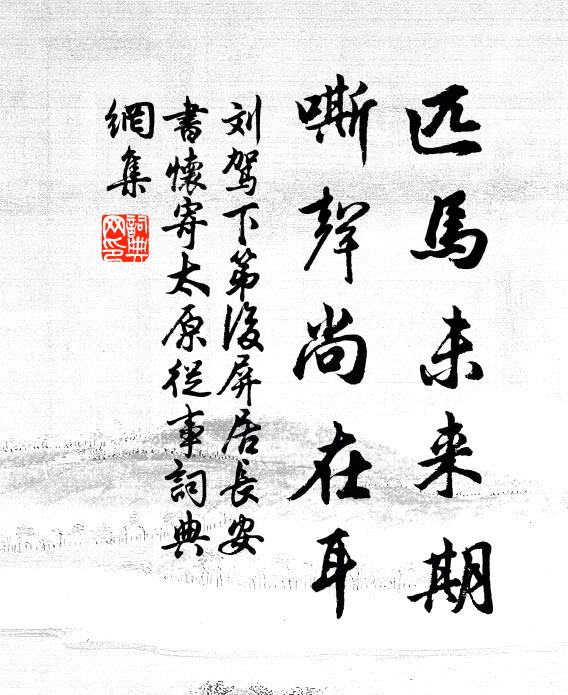 匹馬未来期
嘶聲尚在耳
刘駕下第後屏居長安
書懷寄太原從事詞典
網集
詞典
网印